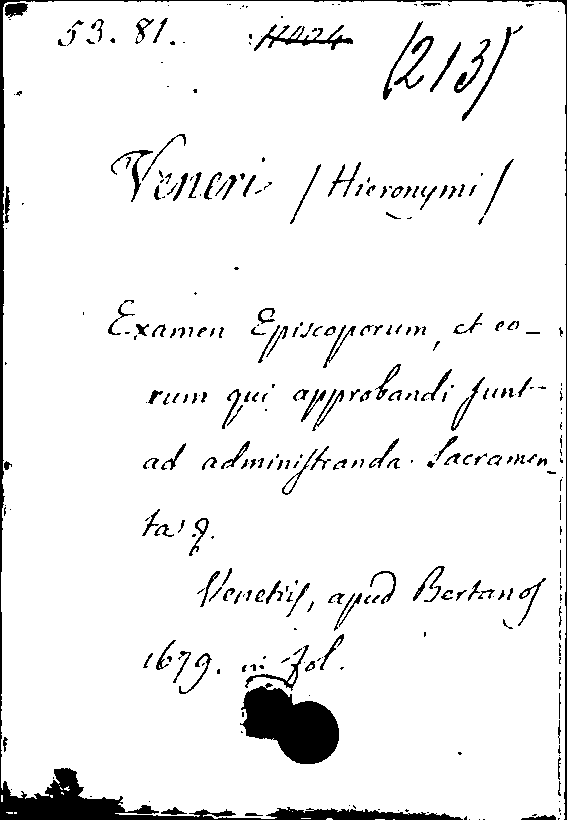 53. 81. (213)
Veneri /Hieronymi/
Examen Episcoporum, et eo-
rum qui approbandi sunt
ad administranda Sacramen-
ta
Venetiis, apud Bertanos
1679. in fol.